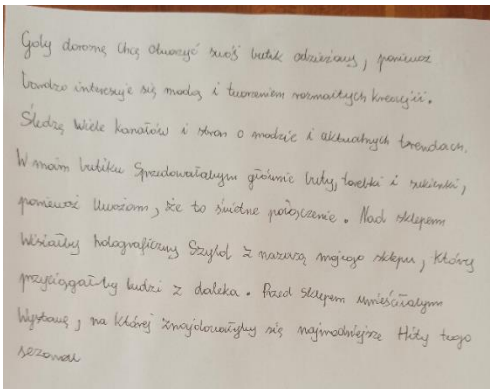 Gdy dorosnę chcę otworzyć swój butik odzieżowy, ponieważ
bardzo interesuje się modą i tworzeniem rozmaitych kreacji.
Śledzę wiele kanałów i stron o modzie i aktualnych trendach.
W moim butiku Sprzedawałabym głównie buty, torebki i sukienki,
ponieważ Uważam, że to świetne połączenie. Nad sklepem
Wisiałby holograficzny Szyld z nazwą mojego sklepu, który
przyciągałby ludzi z daleka. Przed sklepem umieściłabym
Wystawę, na której znajdowałyby się najmodniejsze Hity tego
sezonu